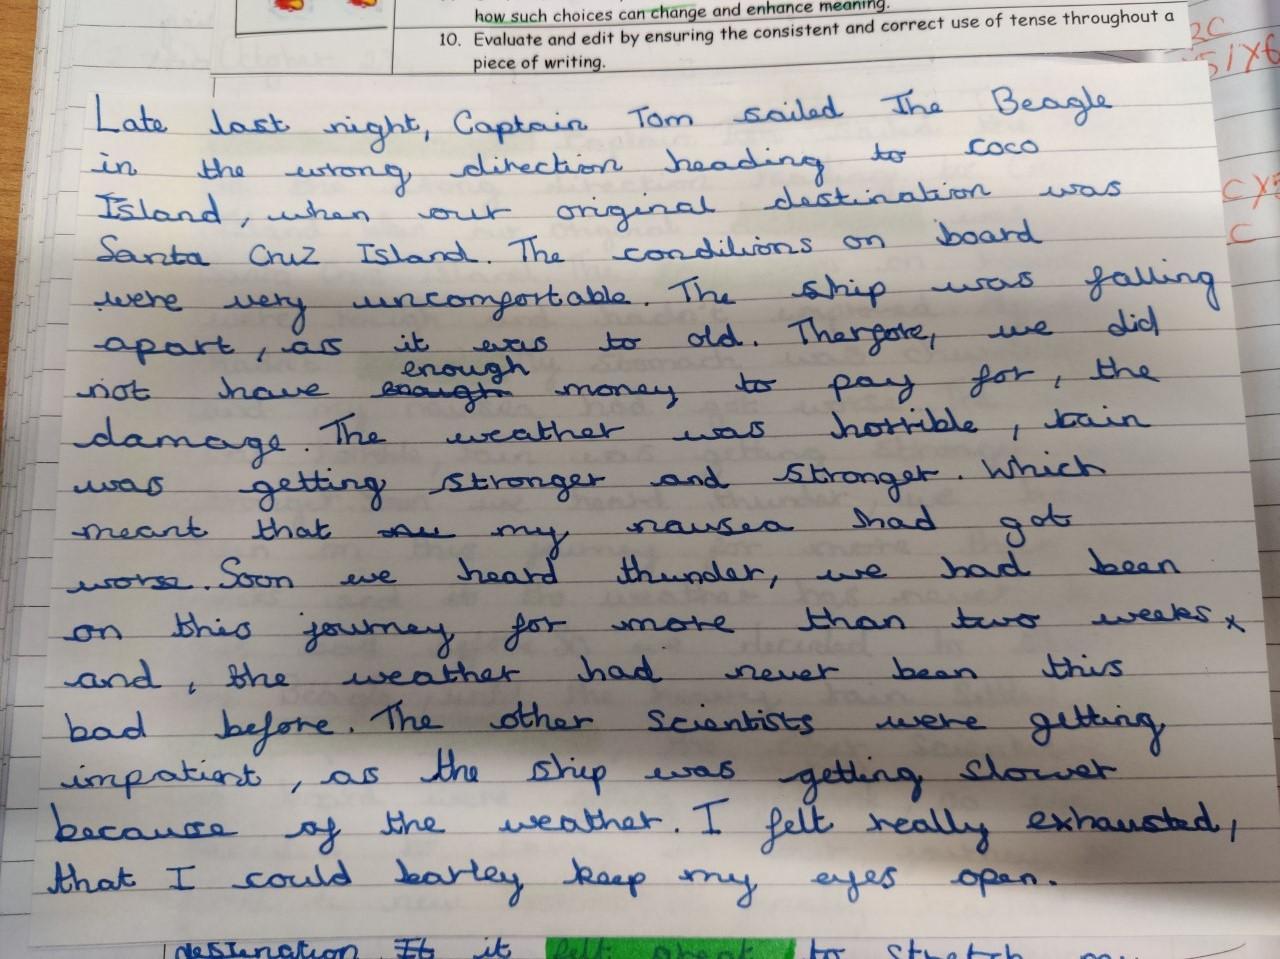 how such choices can change and enhance meaning.
10. Evaluate and edit by ensuring the consistent and correct use of tense throughout a
piece of writing.
Late last night, Captain Tom sailed The Beagle
in the wrong direction heading to coco
Island, when our original destination was
Santa Cruz Island. The conditions on board
were very uncomfortable. The ship was falling
apart, as it was to old. Therfore, we did
enough
not have enough money to pay for, the
damage. The weather was horrible, rain
was getting stronger and stronger. Which
meant that my nausea had got
worse. Soon we heard thunder, we had been
on this journey for more than two weeks x
and, the weather had never been this
bad before. The other scientists were getting
impatient, as the ship was getting slower
because of the weather. I felt really exhausted,
that I could barley keep my eyes open.
destination It it felt great to stretch